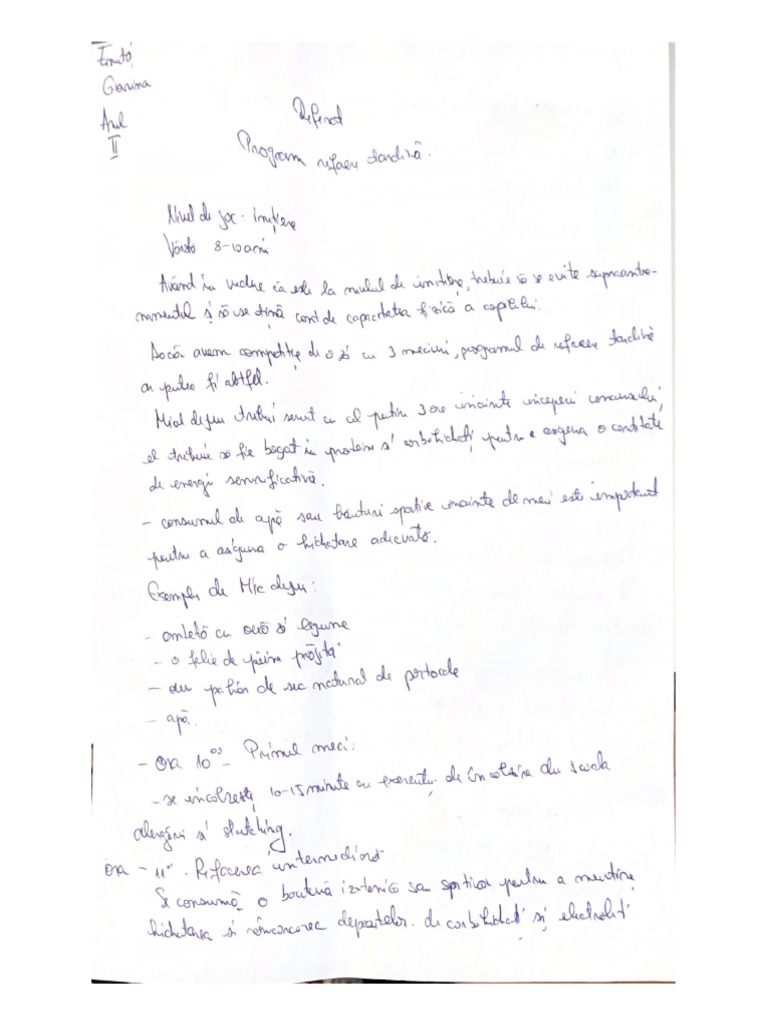 Gianina
Anul
II
Referat
Program refacere tardivă.
Nivel de joc - inițiere
Vârsta 8-10 ani
Având în vedere ca este la nivelul de inițiere, trebuie să se evite supraantre-
namentul și să se țină cont de capacitatea fizică a copilului.
Dacă avem competiție de o zi cu 3 meciuri, programul de refacere tardivă
ar putea fi astfel.
Micul dejun trebuie servit cu cel puțin 3 ore inainte inceperi concursului,
el trebuie să fie bogat in proteine si carbohidrați pentru a asigura o cantitate
de energi semnificativă.
- consumul de apă sau băuturi sportive inainte de meci este important
pentru a asigura o hidratare adecvată.
Exemplu de Mic dejun:
- omletă cu ouă si legume
- o felie de pâine prăjita
- un pahar de suc natural de portocale
- apă.
- ora 10⁰⁰ - Primul meci:
- se incalzește 10-15 minute cu exerciții de încalzire din scoala
alergării si stretching.
ora - 11⁰⁰. Refacerea intermediară
Se consumă o bautură izotonică sau sportivă pentru a mentine
hidratarea si reîncarcarea depozitelor de carbohidrați și electroliți